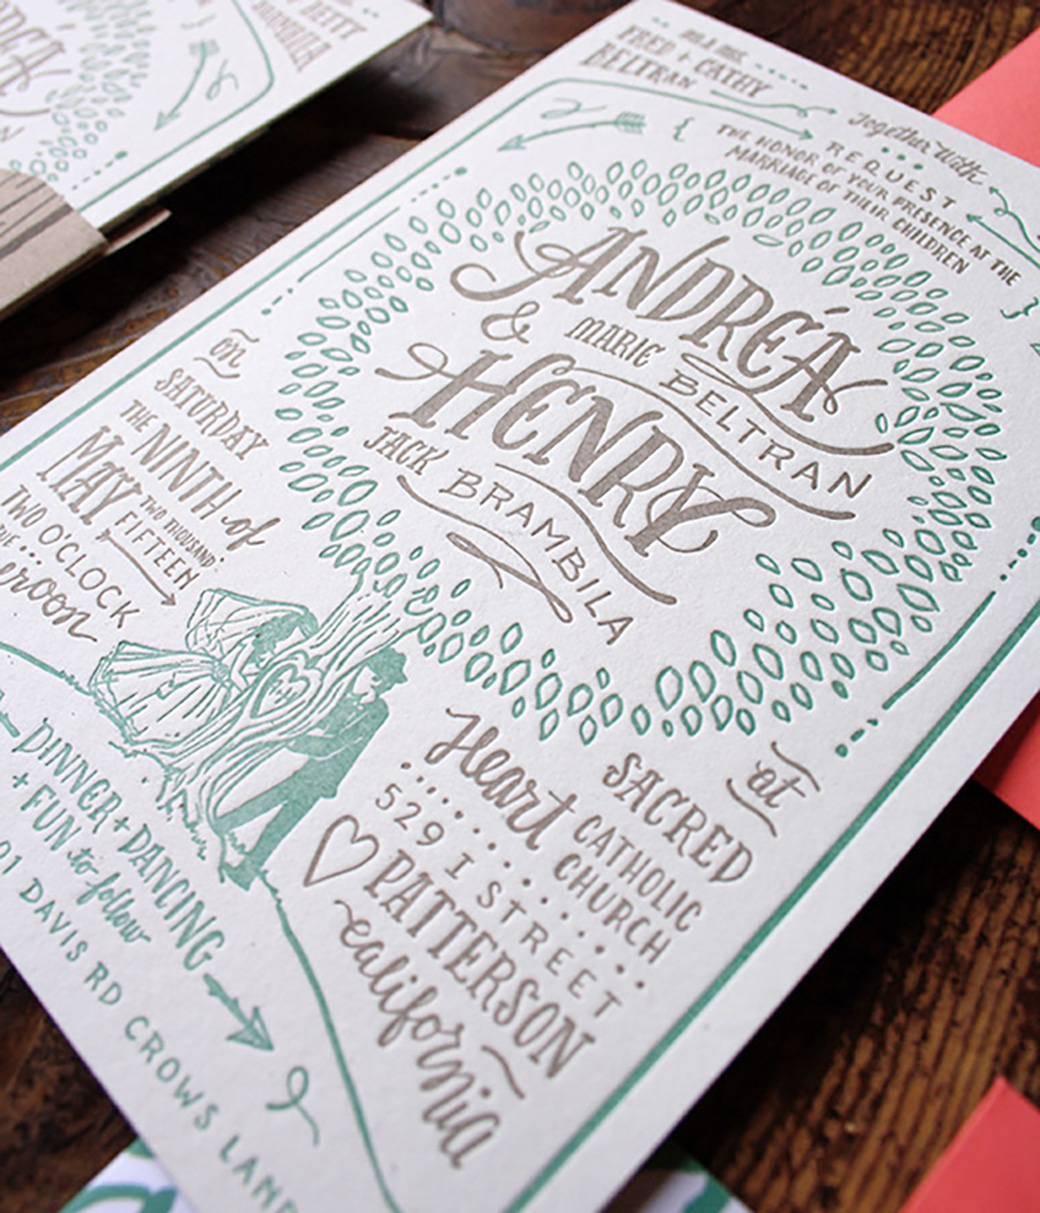 FRED + CATHY
BELTRAN
Together With
REQUEST
THE HONOR OF YOUR PRESENCE AT THE
MARRIAGE OF THEIR CHILDREN
ANDREÁ
MARIE BELTRAN
&
HENRY
JACK BRAMBILA
on
SATURDAY
THE NINTH of
MAY TWO THOUSAND
FIFTEEN
TWO O'CLOCK
at
SACRED
Heart CATHOLIC
CHURCH
529 I STREET
PATTERSON
california
DINNER + DANCING
+ FUN to follow
DAVIS RD CROWS
BETTY